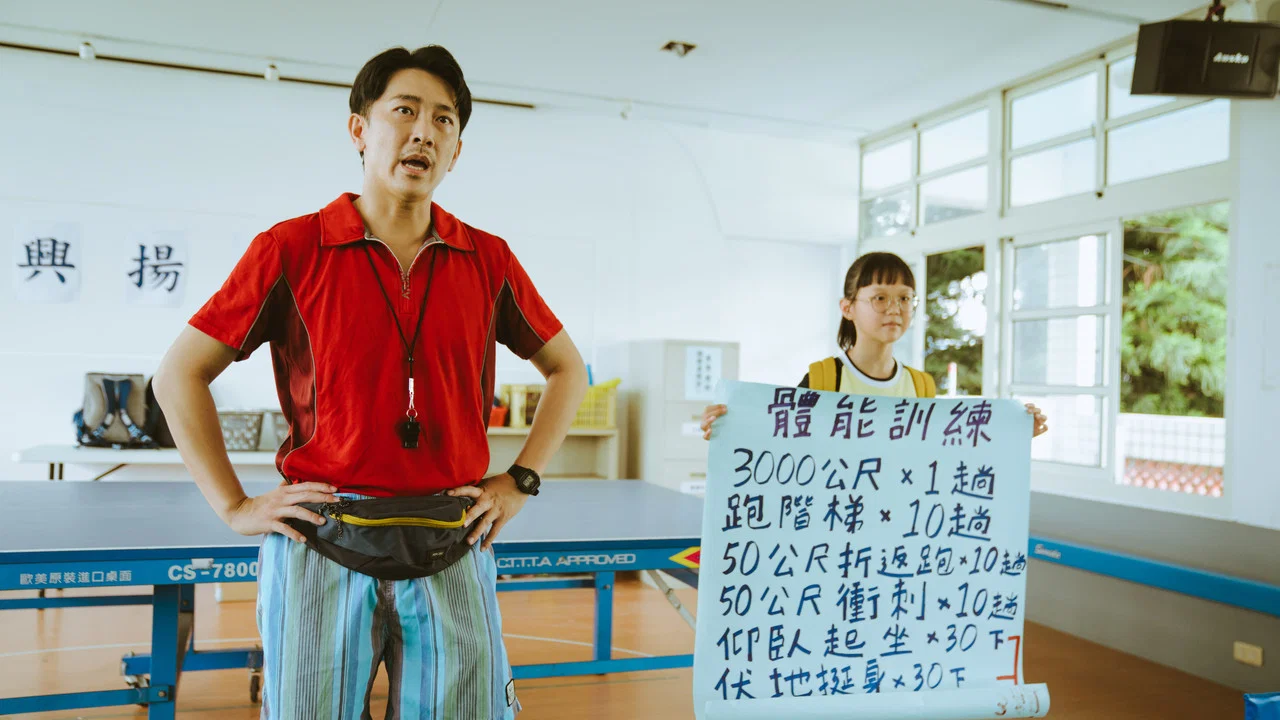 興 揚
體能訓練
3000公尺×1趟
跑階梯×10趟
50公尺折返跑×10趟
50公尺衝刺×10趟
仰臥起坐×30下
伏地挺身×30下
歐美原裝進口桌面
CS-7800
C.T.T.T.A APPROVED